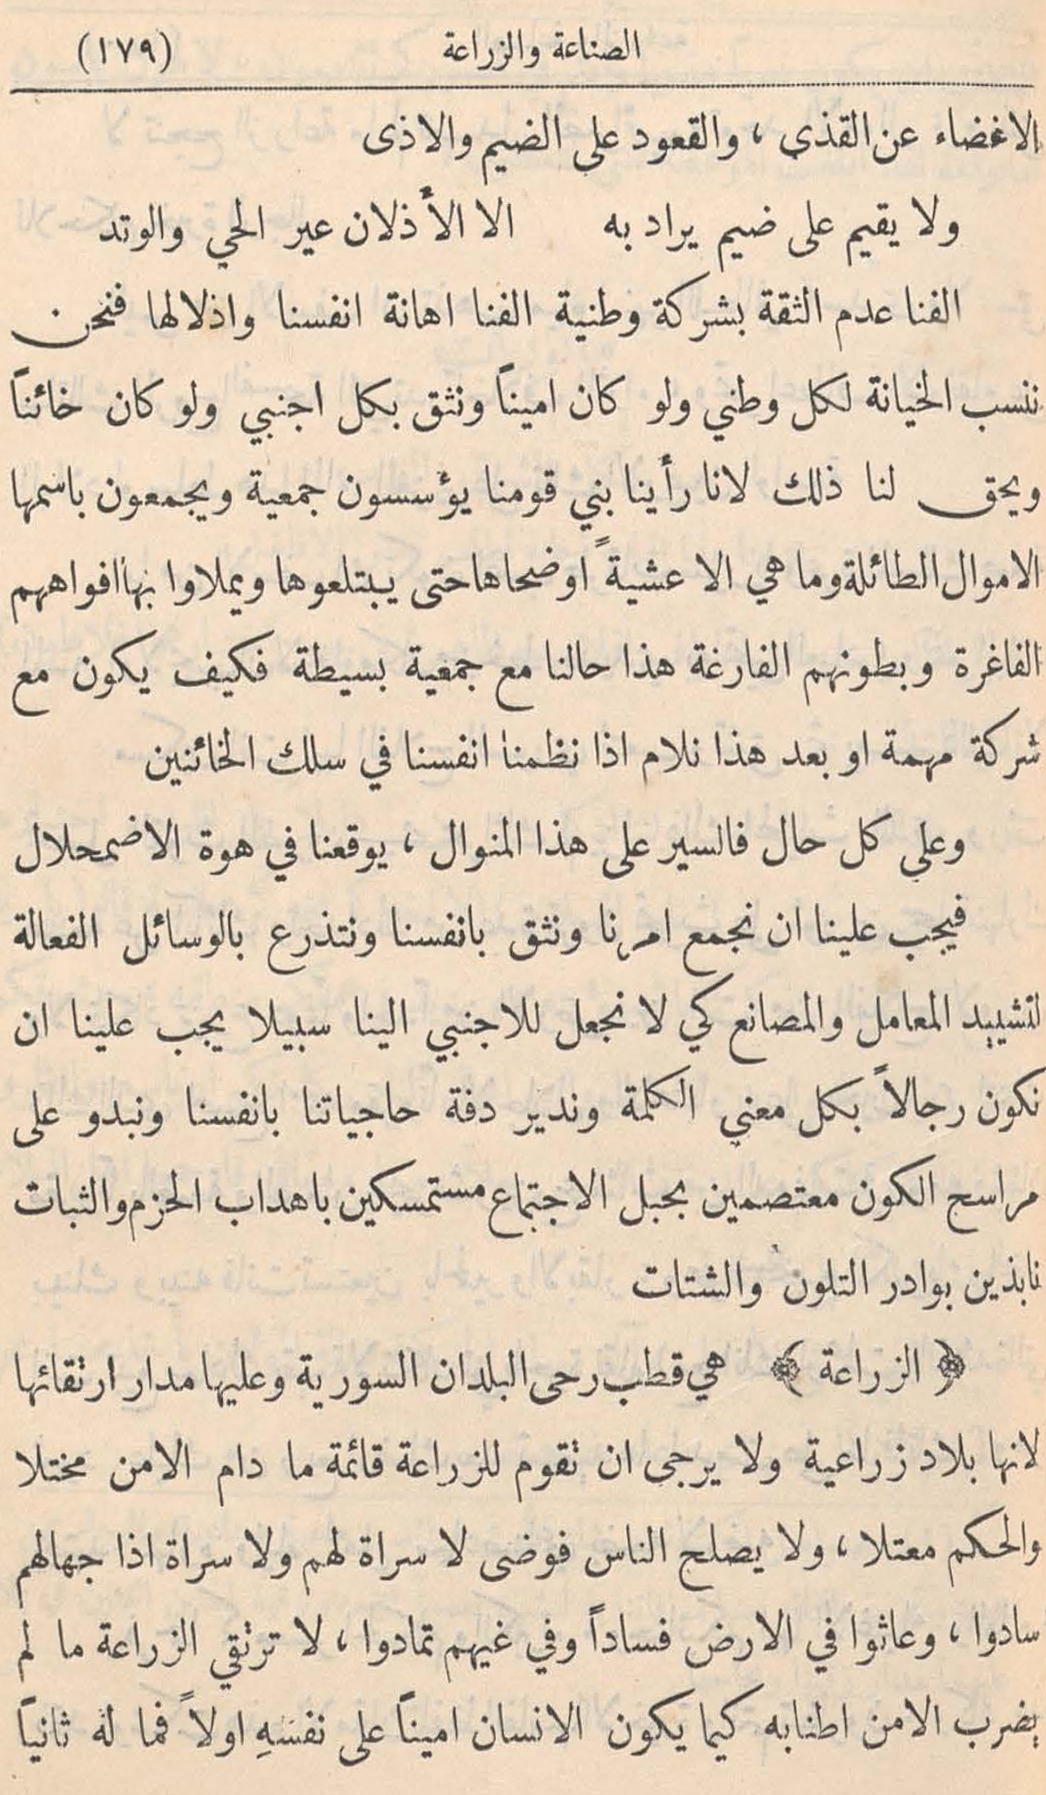 الصناعة والزراعة (١٧٩)
الاغضاء عن القذى ، والقعود على الضيم والاذى
ولا يقيم على ضيم يراد به الا الأذلان عير الحي والوتد
الفنا عدم الثقة بشركة وطنية الفنا اهانة انفسنا واذلالها فنحن
ننسب الخيانة لكل وطني ولو كان اميناً ونثق بكل اجنبي ولو كان خائناً
ويحق لنا ذلك لانا رأينا بني قومنا يؤسسون جمعية ويجمعون باسمها
الاموال الطائلة وما هي الا عشيةً اوضحاها حتى يبتلعوها ويملاوا بها افواههم
الفاغرة وبطونهم الفارغة هذا حالنا مع جمعية بسيطة فكيف يكون مع
شركة مهمة او بعد هذا نلام اذا نظمنا انفسنا في سلك الخائنين
وعلى كل حال فالسير على هذا المنوال ، يوقعنا في هوة الاضمحلال
فيجب علينا ان نجمع امرنا ونثق بانفسنا ونتذرع بالوسائل الفعالة
لتشييد المعامل والمصانع كي لا نجعل للاجنبي الينا سبيلا يجب علينا ان
نكون رجالاً بكل معنى الكلمة وندير دفة حاجياتنا بانفسنا ونبدو على
مراسح الكون معتصمين بحبل الاجتماع مستمسكين باهداب الحزم والثبات
نابذين بوادر التلون والشتات
﴿ الزراعة ﴾ هي قطب رحى البلدان السورية وعليها مدار ارتقائها
لانها بلاد زراعية ولا يرجى ان تقوم للزراعة قائمة ما دام الامن مختلا
والحكم معتلا ، ولا يصلح الناس فوضى لا سراة لهم ولا سراة اذا جهالهم
سادوا ، وعاثوا في الارض فساداً وفي غيهم تمادوا ، لا ترتقي الزراعة ما لم
يضرب الامن اطنابه كيما يكون الانسان اميناً على نفسهِ اولاً فما له ثانياً